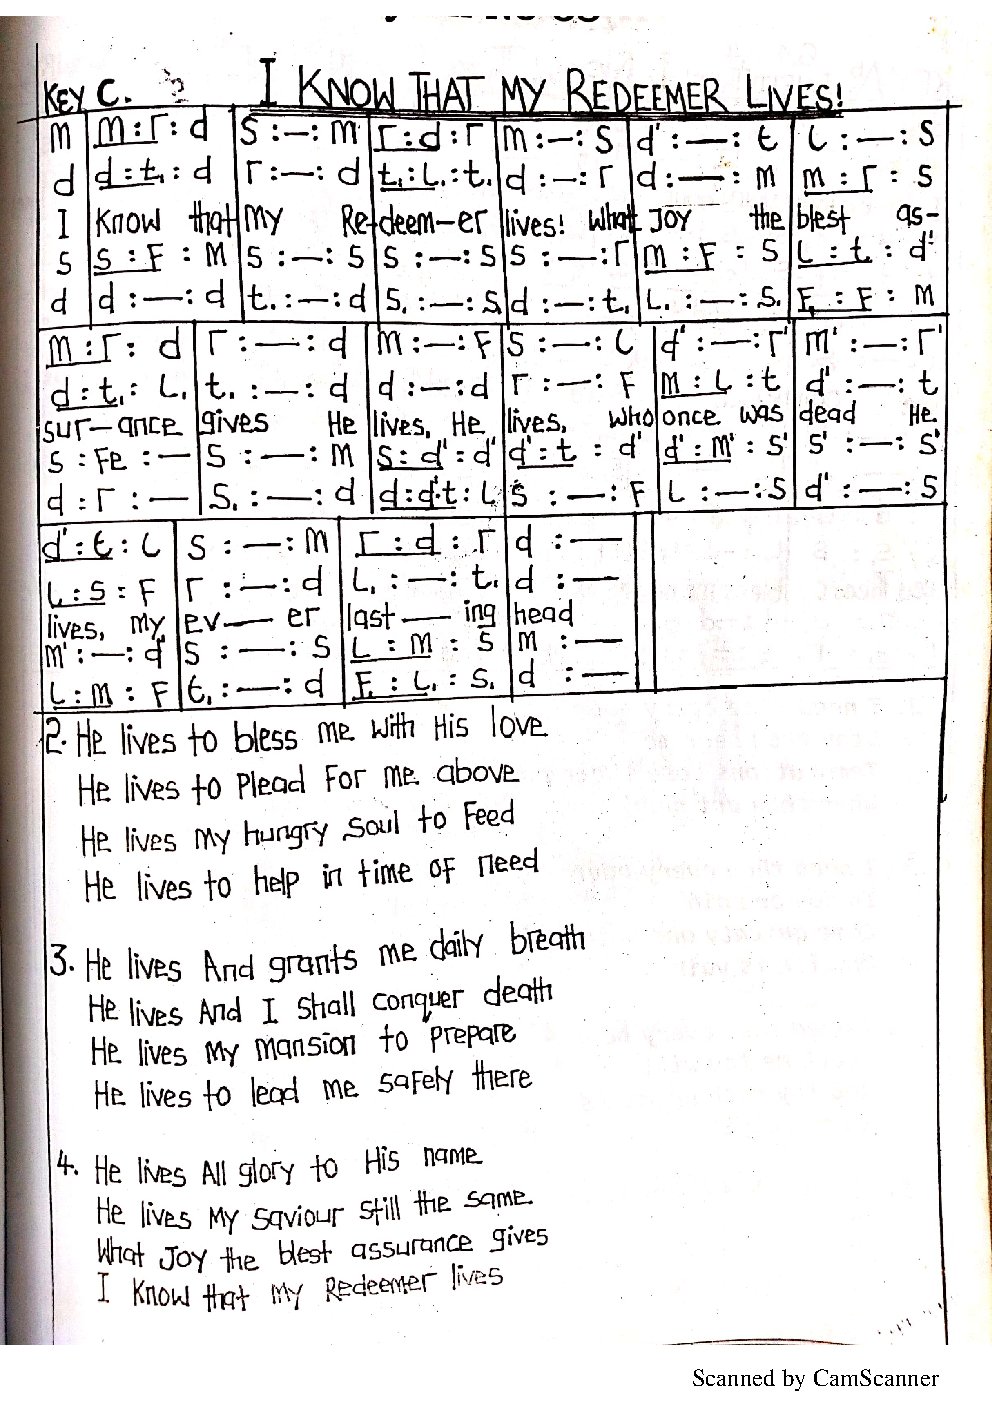 KEY C. I KNOW THAT MY REDEEMER LIVES!
m | m : r : d | s : — : m | r : d : r | m : — : s | d' : — : t | l : — : s
d | d : t, : d | r : — : d | t, : l, : t, | d : — : r | d : — : m | m : r : s
I know that my Re-deem-er lives! What Joy the blest as-
s | s : f : m | s : — : s | s : — : s | s : — : r | m : f : s | l : t : d'
d | d : — : d | t, : — : d | s, : — : s, | d : — : t, | l, : — : s, | f, : f : m
m : r : d | r : — : d | m : — : f | s : — : l | d' : — : r' | m' : — : r'
d : t, : l, | t, : — : d | d : — : d | r : — : f | m : l : t | d' : — : t
sur-ance gives He lives, He lives, who once was dead He
s : fe : — | s : — : m | s : d' : d' | d' : t : d' | d' : m' : s' | s' : — : s'
d : r : — | s, : — : d | d : d't : l | s : — : f | l : — : s | d' : — : s
d' : t : l | s : — : m | r : d : r | d : —
l : s : f | r : — : d | l, : — : t, | d : —
lives, my ev— er last— ing head
m' : — : d' | s : — : s | l : m : s | m : —
l : m : f | t, : — : d | f, : l, : s, | d : —
2. He lives to bless me with His love
He lives to Plead For me above
He lives my hungry soul to Feed
He lives to help in time of need
3. He lives And grants me daily breath
He lives And I shall conquer death
He lives My mansion to prepare
He lives to lead me safely there
4. He lives All glory to His name
He lives My saviour still the same.
What Joy the blest assurance gives
I know that my Redeemer lives
Scanned by CamScanner